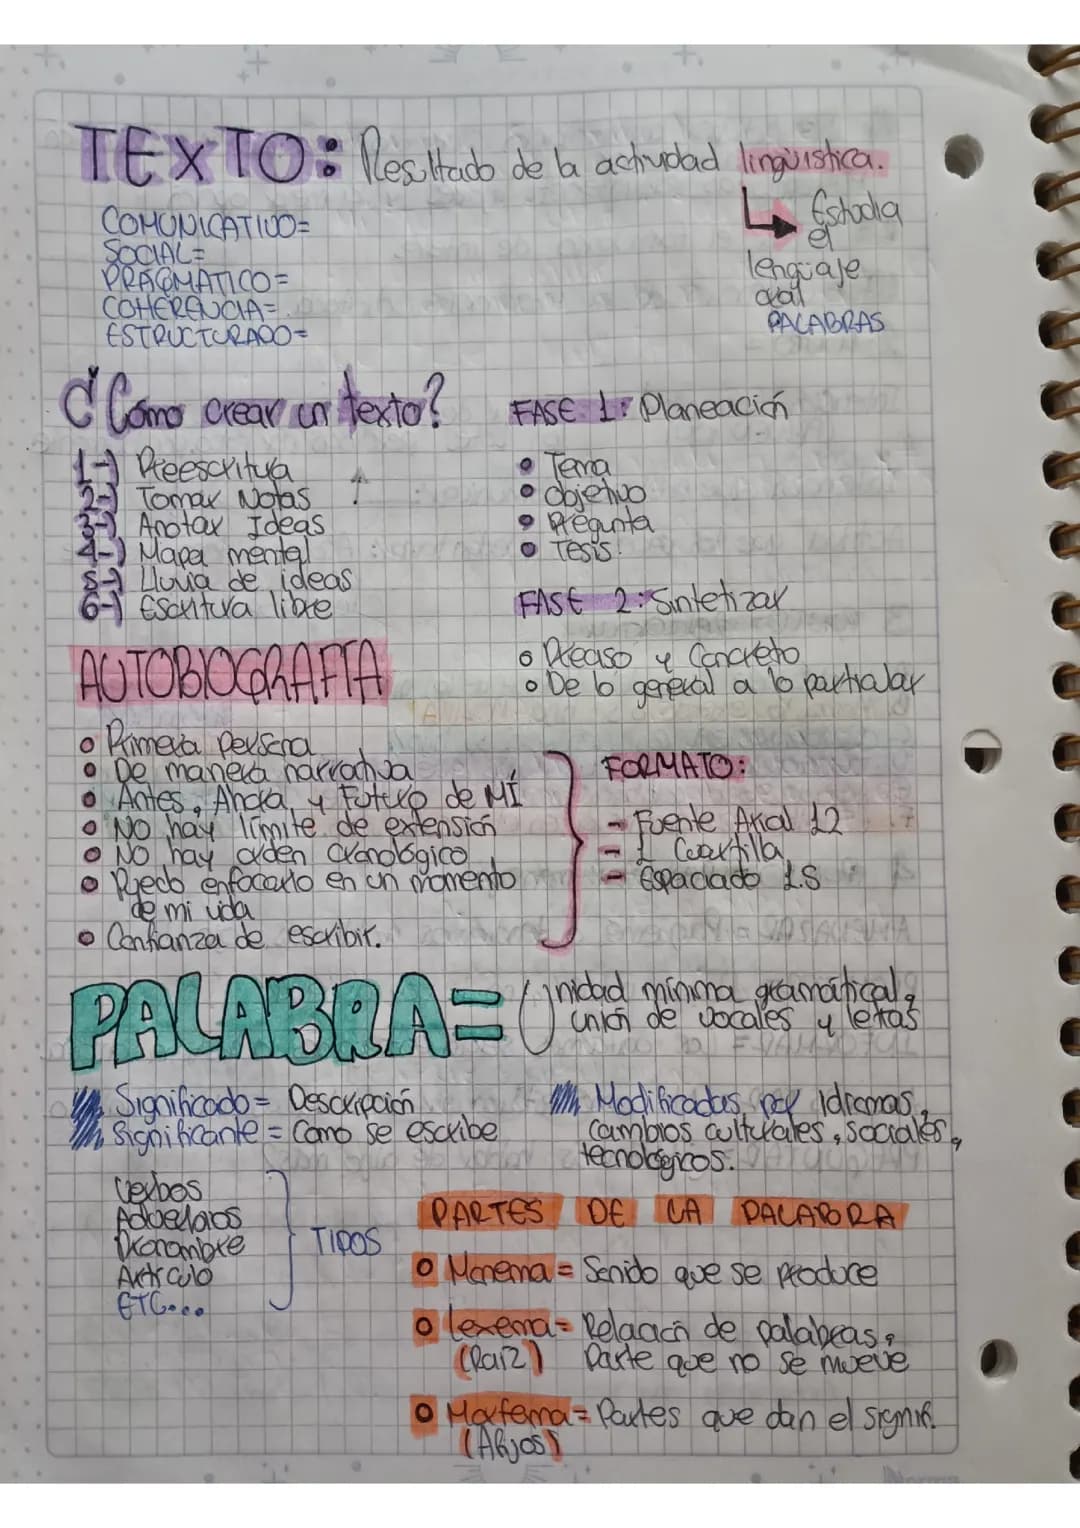 TEXTO: Resultado de la actividad lingüistica.
Estudia
el
lenguaje
oral
PALABRAS
COMUNICATIVO=
SOCIAL=
PRAGMATICO=
COHERENCIA=
ESTRUCTURADO=
¿Cómo crear un texto?
1-) Preescritura
2-) Tomar Notas
3-) Anotar Ideas
4-) Mapa mental
5-) Lluvia de ideas
6-) Escritura libre
FASE 1: Planeación
• Tema
• Objetivo
• Pregunta
• Tesis.
FASE 2: Sintetizar
• Preciso y Concreto
• De lo general a lo particular
AUTOBIOGRAFIA
• Primera Persona
• De manera narrativa
• Antes, Ahora, y Futuro de MÍ
• NO hay límite de extensión
• NO hay orden cronológico
• Puedo enfocarlo en un momento
de mi vida
• Confianza de escribir.
FORMATO:
- Fuente Arial 12
- 1 Cuartilla
- Espaciado 1.5
PALABRA= Unidad mínima gramatical,
unión de vocales y letras
Significado= Descripción
Significante= Como se escribe
Modificadas por Idiomas,
cambios culturales, sociales,
tecnológicos.
Verbos
Adverbios
Pronombre
Artículo
ETC...
TIPOS
PARTES DE LA PALABRA
• Monema= Sonido que se produce
• Lexema= Relación de palabras,
(Raíz) Parte que no se mueve
• Morfema= Partes que dan el signif.
(Afijos)